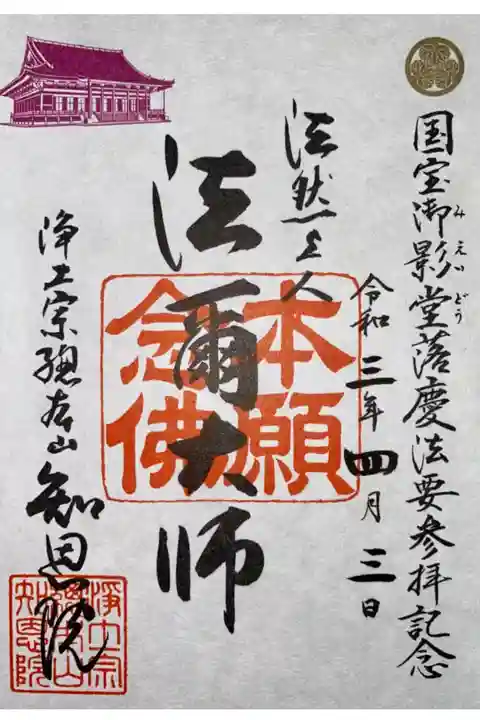 国宝御影堂落慶法要参拝記念
みえいどう
令和三年四月三日
法然上人
法爾大師
本願
念佛
浄土宗総本山知恩院
浄土宗
總本山
知恩院